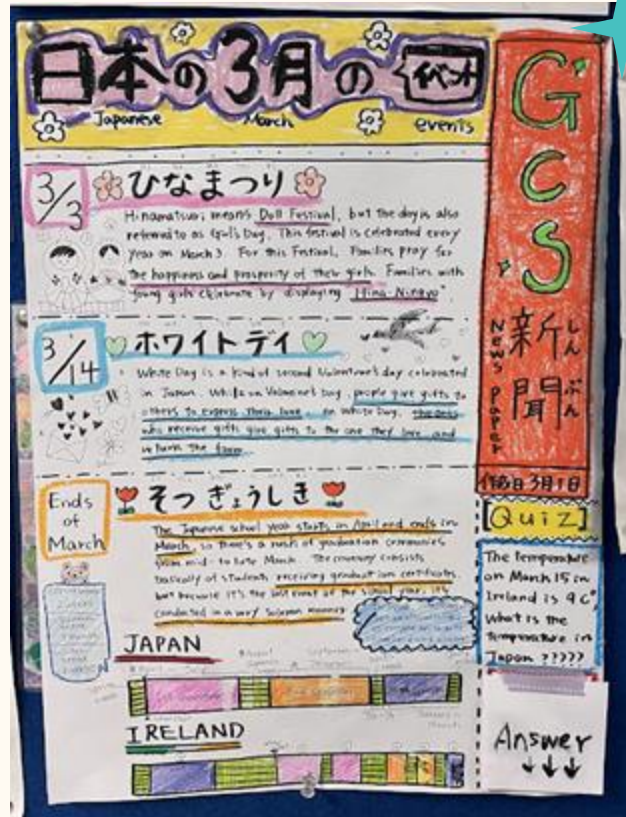 日本の3月のイベント
Japanese March events
GCS
新聞
しんぶん
News paper
作成日 3月1日
3/3
ひなまつり
Hinamatsuri means Doll Festival, but the day is also
referred to as Girl's Day. This festival is celebrated every
year on March 3. For this Festival, Families pray for
the happiness and prosperity of their girls. Families with
young girls celebrate by displaying "Hina-Ningyo".
3/14
ホワイトデイ
White Day is a kind of second Valentine's day celebrated
in Japan. While on Valentine's Day, people give gifts to
others to express their love, on White Day,
who receive gifts give gifts to the one they love and
return the favor.
Ends
of
March
そつぎょうしき
The Japanese school year starts in April and ends in
March, so there's a rush of graduation ceremonies
from mid- to late March. The ceremony consists
basically of students receiving graduation certificates,
but because it's the last event of the school year, it's
conducted in a very solemn manner.
JAPAN
IRELAND
[Quiz]
The temperature
on March 15 in
Ireland is 9℃,
What is the
temperature in
Japan ?????
Answer
↓↓↓